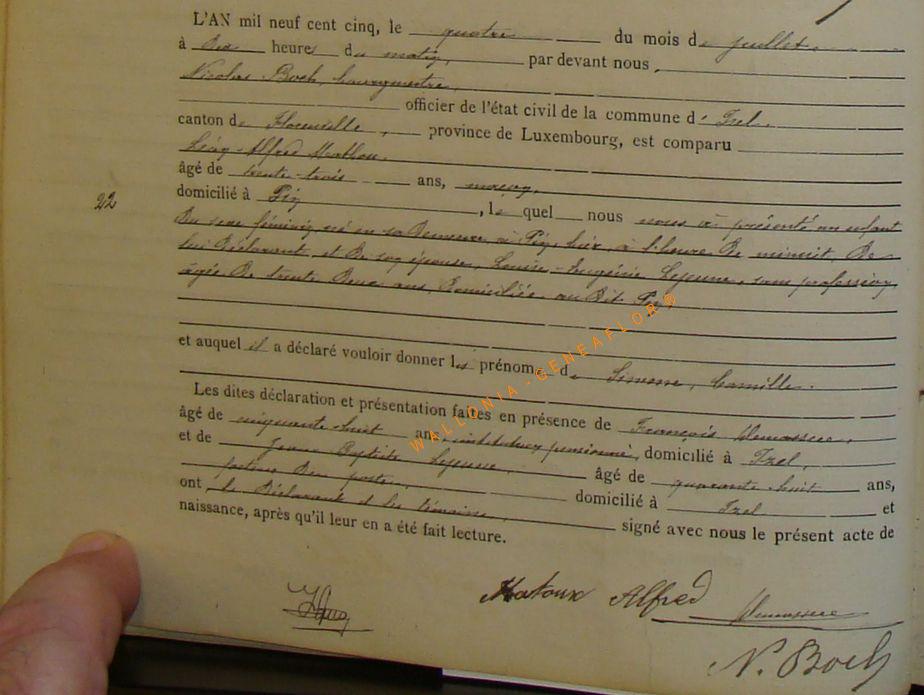 L'AN mil neuf cent cinq, le quatre du mois de juillet
à dix heures du matin, par devant nous
Nicolas Boch, bourgmestre,
officier de l'état civil de la commune d'Izel
canton de Florenville, province de Luxembourg, est comparu
Alfred
âgé de trente-trois ans, maçon,
22
domicilié à Pin, lequel nous nous a présenté un enfant
du sexe féminin né en sa demeure, à Pin, hier, à l'heure de minuit, de
lui déclarant, et de son épouse, Louise-Eugénie Lejeune, sans profession,
âgée de trente deux ans, domiciliée au dit Pin
et auquel il a déclaré vouloir donner les prénoms de Simone, Camille.
Les dites déclaration et présentation faites en présence de François
âgé de cinquante-huit ans, instituteur pensionné, domicilié à Izel,
et de Jean Baptiste Lejeune, âgé de quarante-huit ans,
facteur des postes, domicilié à Izel et
ont, le déclarant et les témoins, signé avec nous le présent acte de
naissance, après qu'il leur en a été fait lecture.
WALLONIA-GENEAFLOR®
Alfred
N. Boch